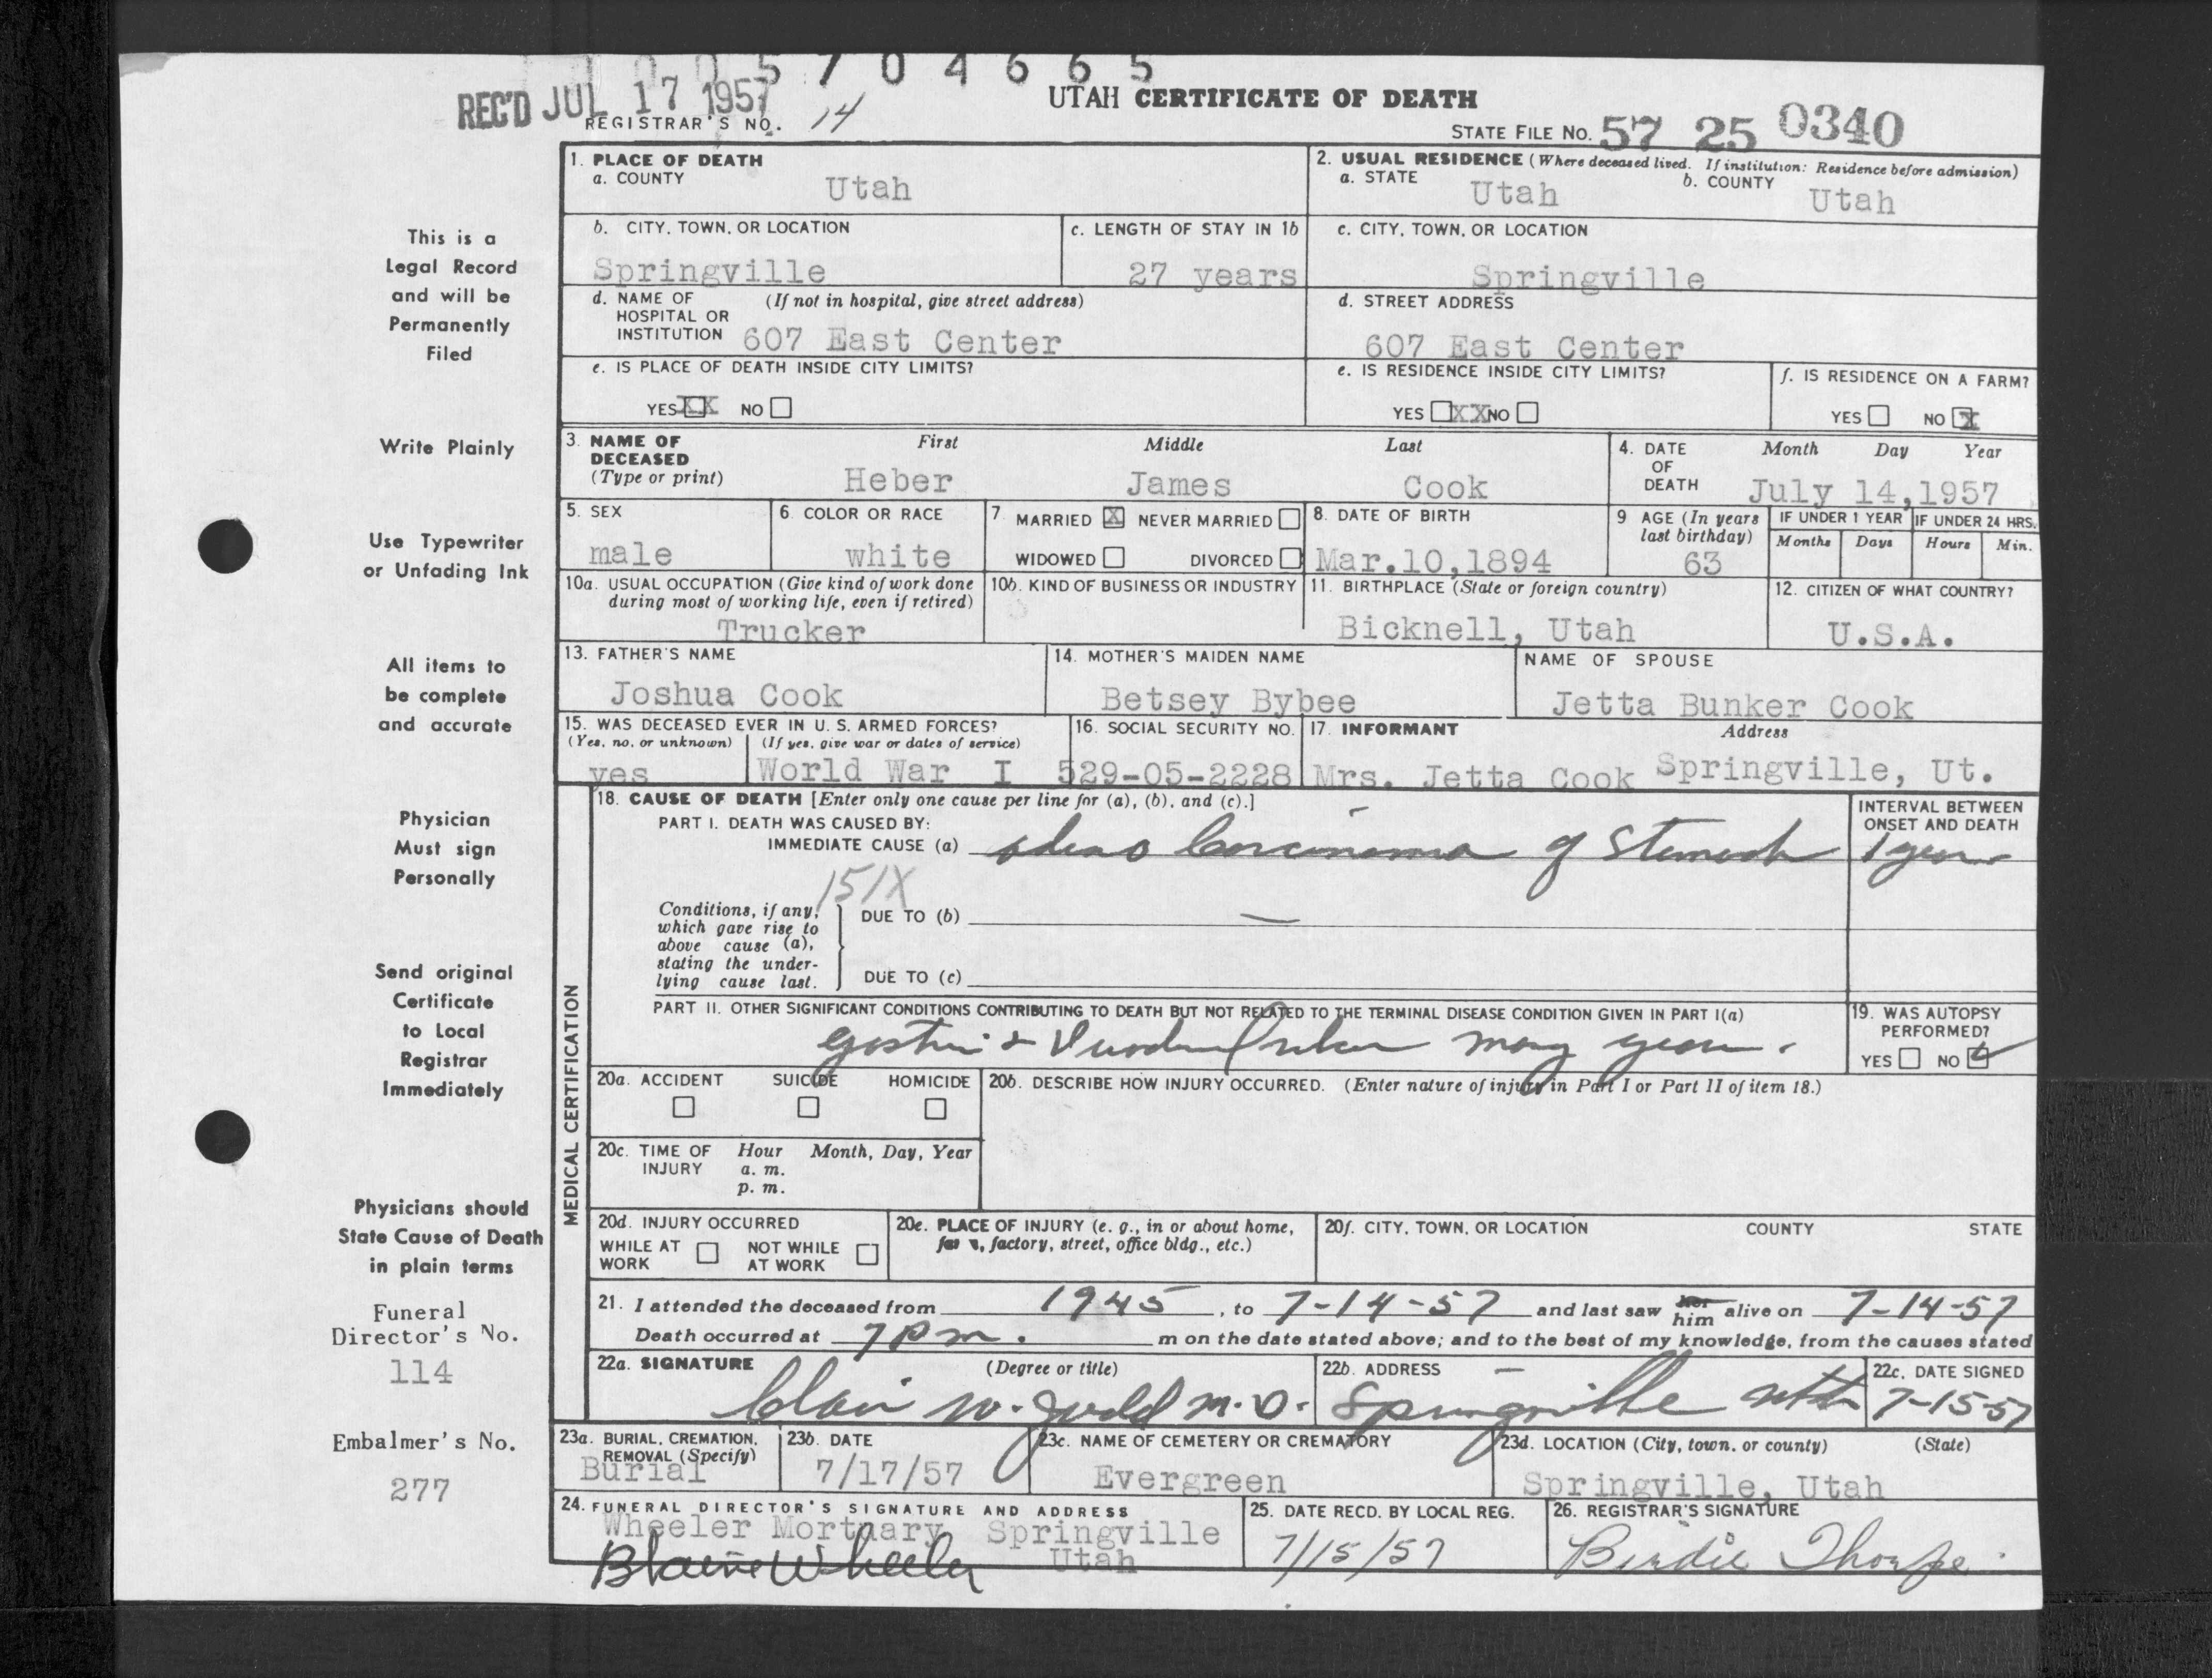 5 7 0 4 6 6 5
REC'D JUL 17 1957
UTAH CERTIFICATE OF DEATH
REGISTRAR'S NO. 14
STATE FILE NO. 57 25 0340
1. PLACE OF DEATH
a. COUNTY Utah
2. USUAL RESIDENCE (Where deceased lived. If institution: Residence before admission)
a. STATE Utah b. COUNTY Utah
b. CITY, TOWN, OR LOCATION Springville
c. LENGTH OF STAY IN 1b 27 years
c. CITY, TOWN, OR LOCATION Springville
d. NAME OF HOSPITAL OR INSTITUTION (If not in hospital, give street address) 607 East Center
d. STREET ADDRESS 607 East Center
e. IS PLACE OF DEATH INSIDE CITY LIMITS?
YES XX NO
e. IS RESIDENCE INSIDE CITY LIMITS?
YES XX NO
f. IS RESIDENCE ON A FARM?
YES NO X
3. NAME OF DECEASED (Type or print)
First Middle Last
Heber James Cook
4. DATE OF DEATH Month Day Year
July 14,1957
5. SEX male
6. COLOR OR RACE white
7. MARRIED X NEVER MARRIED
WIDOWED DIVORCED
8. DATE OF BIRTH Mar.10,1894
9 AGE (In years last birthday) 63
IF UNDER 1 YEAR Months Days
IF UNDER 24 HRS. Hours Min.
10a. USUAL OCCUPATION (Give kind of work done during most of working life, even if retired)
Trucker
10b. KIND OF BUSINESS OR INDUSTRY
11. BIRTHPLACE (State or foreign country)
Bicknell, Utah
12. CITIZEN OF WHAT COUNTRY?
U.S.A.
13. FATHER'S NAME
Joshua Cook
14. MOTHER'S MAIDEN NAME
Betsey Bybee
NAME OF SPOUSE
Jetta Bunker Cook
15. WAS DECEASED EVER IN U. S. ARMED FORCES?
(Yes, no, or unknown) (If yes, give war or dates of service)
yes World War I
16. SOCIAL SECURITY NO.
529-05-2228
17. INFORMANT Address
Mrs. Jetta Cook Springville, Ut.
MEDICAL CERTIFICATION
18. CAUSE OF DEATH [Enter only one cause per line for (a), (b), and (c).]
PART I. DEATH WAS CAUSED BY:
IMMEDIATE CAUSE (a) adeno Carcinoma of Stomach
INTERVAL BETWEEN ONSET AND DEATH
1 year
151X
Conditions, if any, which gave rise to above cause (a), stating the underlying cause last.
DUE TO (b) —
DUE TO (c)
PART II. OTHER SIGNIFICANT CONDITIONS CONTRIBUTING TO DEATH BUT NOT RELATED TO THE TERMINAL DISEASE CONDITION GIVEN IN PART I(a)
gastric & Duodenal ulcer many years.
19. WAS AUTOPSY PERFORMED?
YES NO ✓
20a. ACCIDENT SUICIDE HOMICIDE
20b. DESCRIBE HOW INJURY OCCURRED. (Enter nature of injury in Part I or Part II of item 18.)
20c. TIME OF INJURY Hour Month, Day, Year
a. m.
p. m.
20d. INJURY OCCURRED
WHILE AT WORK NOT WHILE AT WORK
20e. PLACE OF INJURY (e. g., in or about home, farm, factory, street, office bldg., etc.)
20f. CITY, TOWN, OR LOCATION COUNTY STATE
21. I attended the deceased from 1945, to 7-14-57 and last saw her him alive on 7-14-57
Death occurred at 7 pm. m on the date stated above; and to the best of my knowledge, from the causes stated
22a. SIGNATURE (Degree or title)
Clair W. Judd M.D.
22b. ADDRESS
Springville Utah
22c. DATE SIGNED
7-15-57
23a. BURIAL, CREMATION, REMOVAL (Specify)
Burial
23b. DATE
7/17/57
23c. NAME OF CEMETERY OR CREMATORY
Evergreen
23d. LOCATION (City, town, or county) (State)
Springville, Utah
24. FUNERAL DIRECTOR'S SIGNATURE AND ADDRESS
Wheeler Mortuary Springville
Utah
Blaine Wheeler
25. DATE RECD. BY LOCAL REG.
7/15/57
26. REGISTRAR'S SIGNATURE
Birdie Thorpe
This is a
Legal Record
and will be
Permanently
Filed
Write Plainly
Use Typewriter
or Unfading Ink
All items to
be complete
and accurate
Physician
Must sign
Personally
Send original
Certificate
to Local
Registrar
Immediately
Physicians should
State Cause of Death
in plain terms
Funeral
Director's No.
114
Embalmer's No.
277